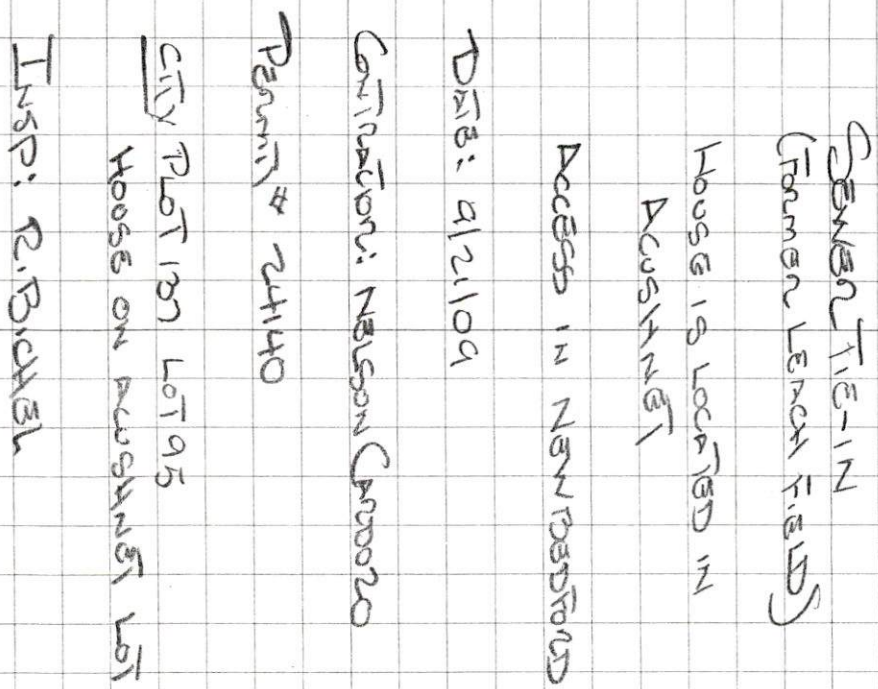 SEWER TIE-IN
(FORMER LEACH FIELD)
HOUSE IS LOCATED IN
ACUSHNET
ACCESS IN NEW BEDFORD
DATE: 9/21/09
CONTRACTOR: NELSON CARDOZO
PERMIT # 24140
CITY PLOT 137 LOT 95
HOUSE ON ACUSHNET LOT
INSP: R. BICHEL